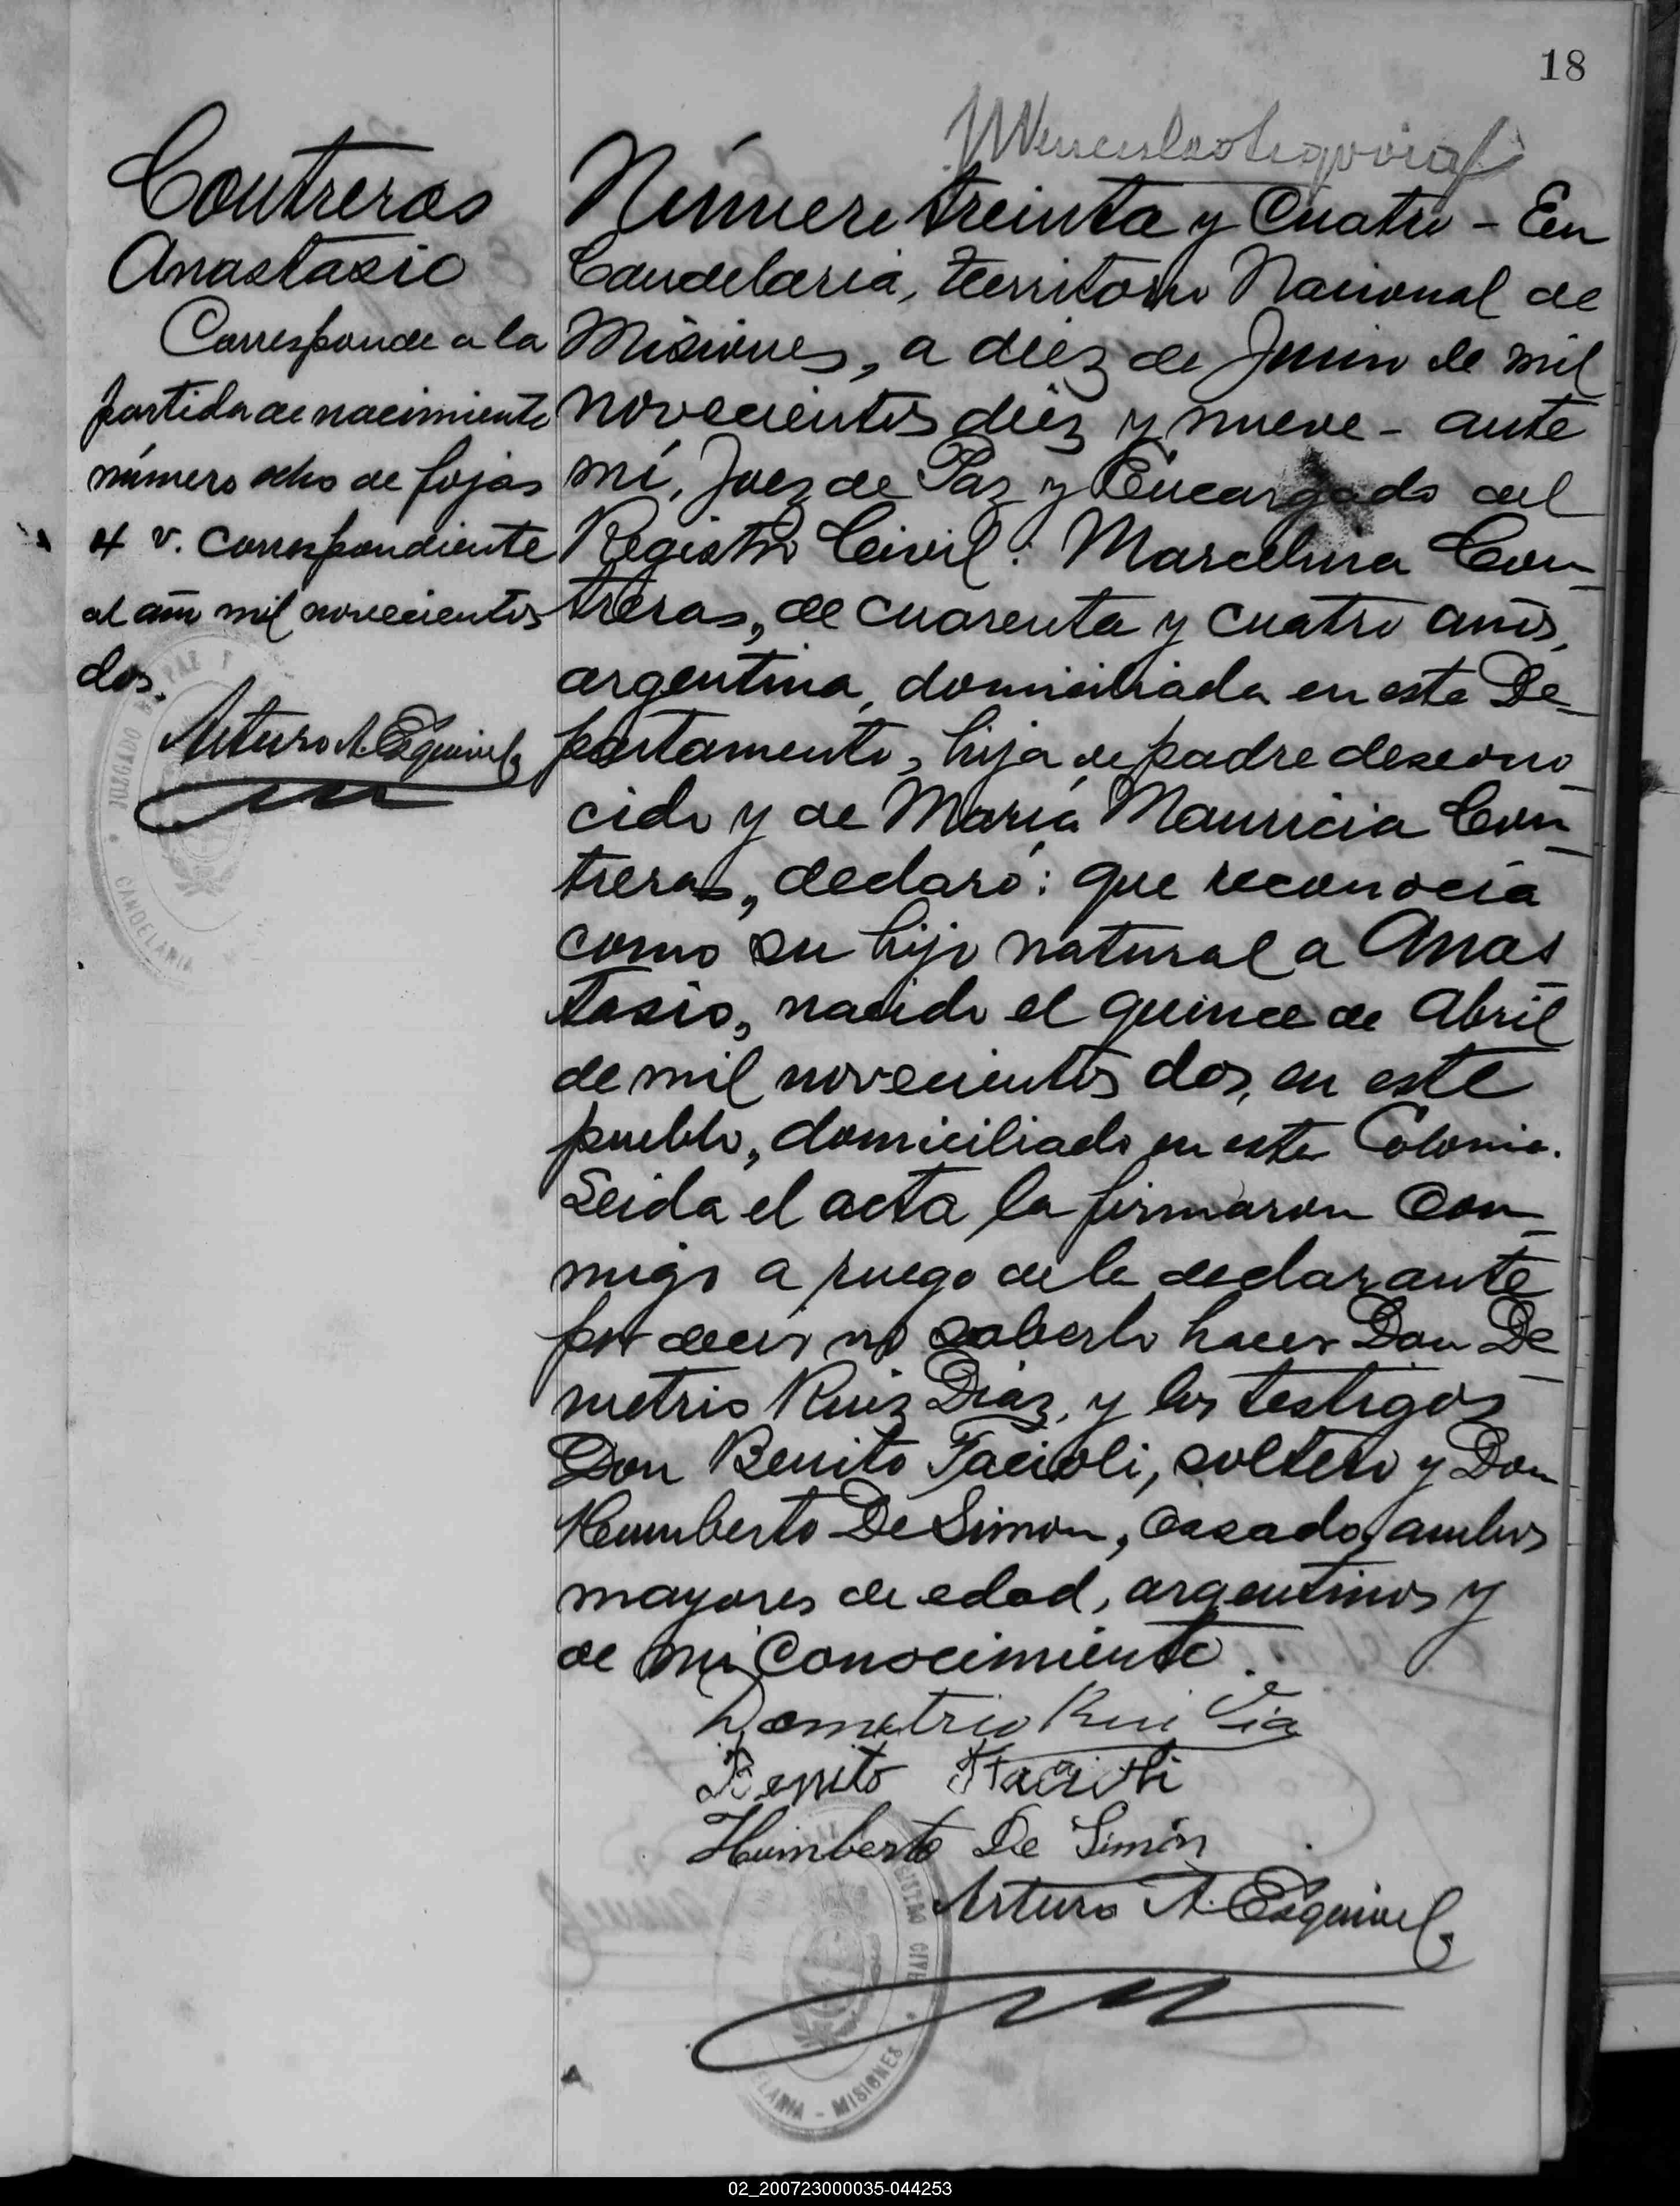 18
Contreras
Anastasio
Corresponde a la
partida de nacimiento
número ocho de fojas
4 v. correspondiente
al año mil novecientos
dos.
Arturo A. Esquivel
JUZGADO DE PAZ Y
CANDELARIA
Número treinta y Cuatro - En
Candelaria, territorio Nacional de
Misiones, a diez de Junio de mil
novecientos diez y nueve - ante
mí, Juez de Paz y Encargado del
Registro Civil: Marcelina Con-
treras, de cuarenta y cuatro años,
argentina, domiciliada en este De-
partamento, hija de padre descono
cido y de María Mauricia Con-
treras, declaró: que reconocía
como su hijo natural a Anas
tasio, nacido el quince de Abril
de mil novecientos dos, en este
pueblo, domiciliado en esta Colonia.
Leida el acta la firmaron con-
migo a ruego de la declarante
por decir no saberlo hacer Don De-
metrio Ruiz Diaz, y los testigos
Don Benito Facioli, soltero y Don
Humberto De Simon, casado, ambos
mayores de edad, argentinos y
de mi conocimiento.
Demetrio Rui Dia
Benito Facioli
Humberto De Simón
Arturo A. Esquivel
REGISTRO CIVIL
CANDELARIA - MISIONES
02_200723000035-044253